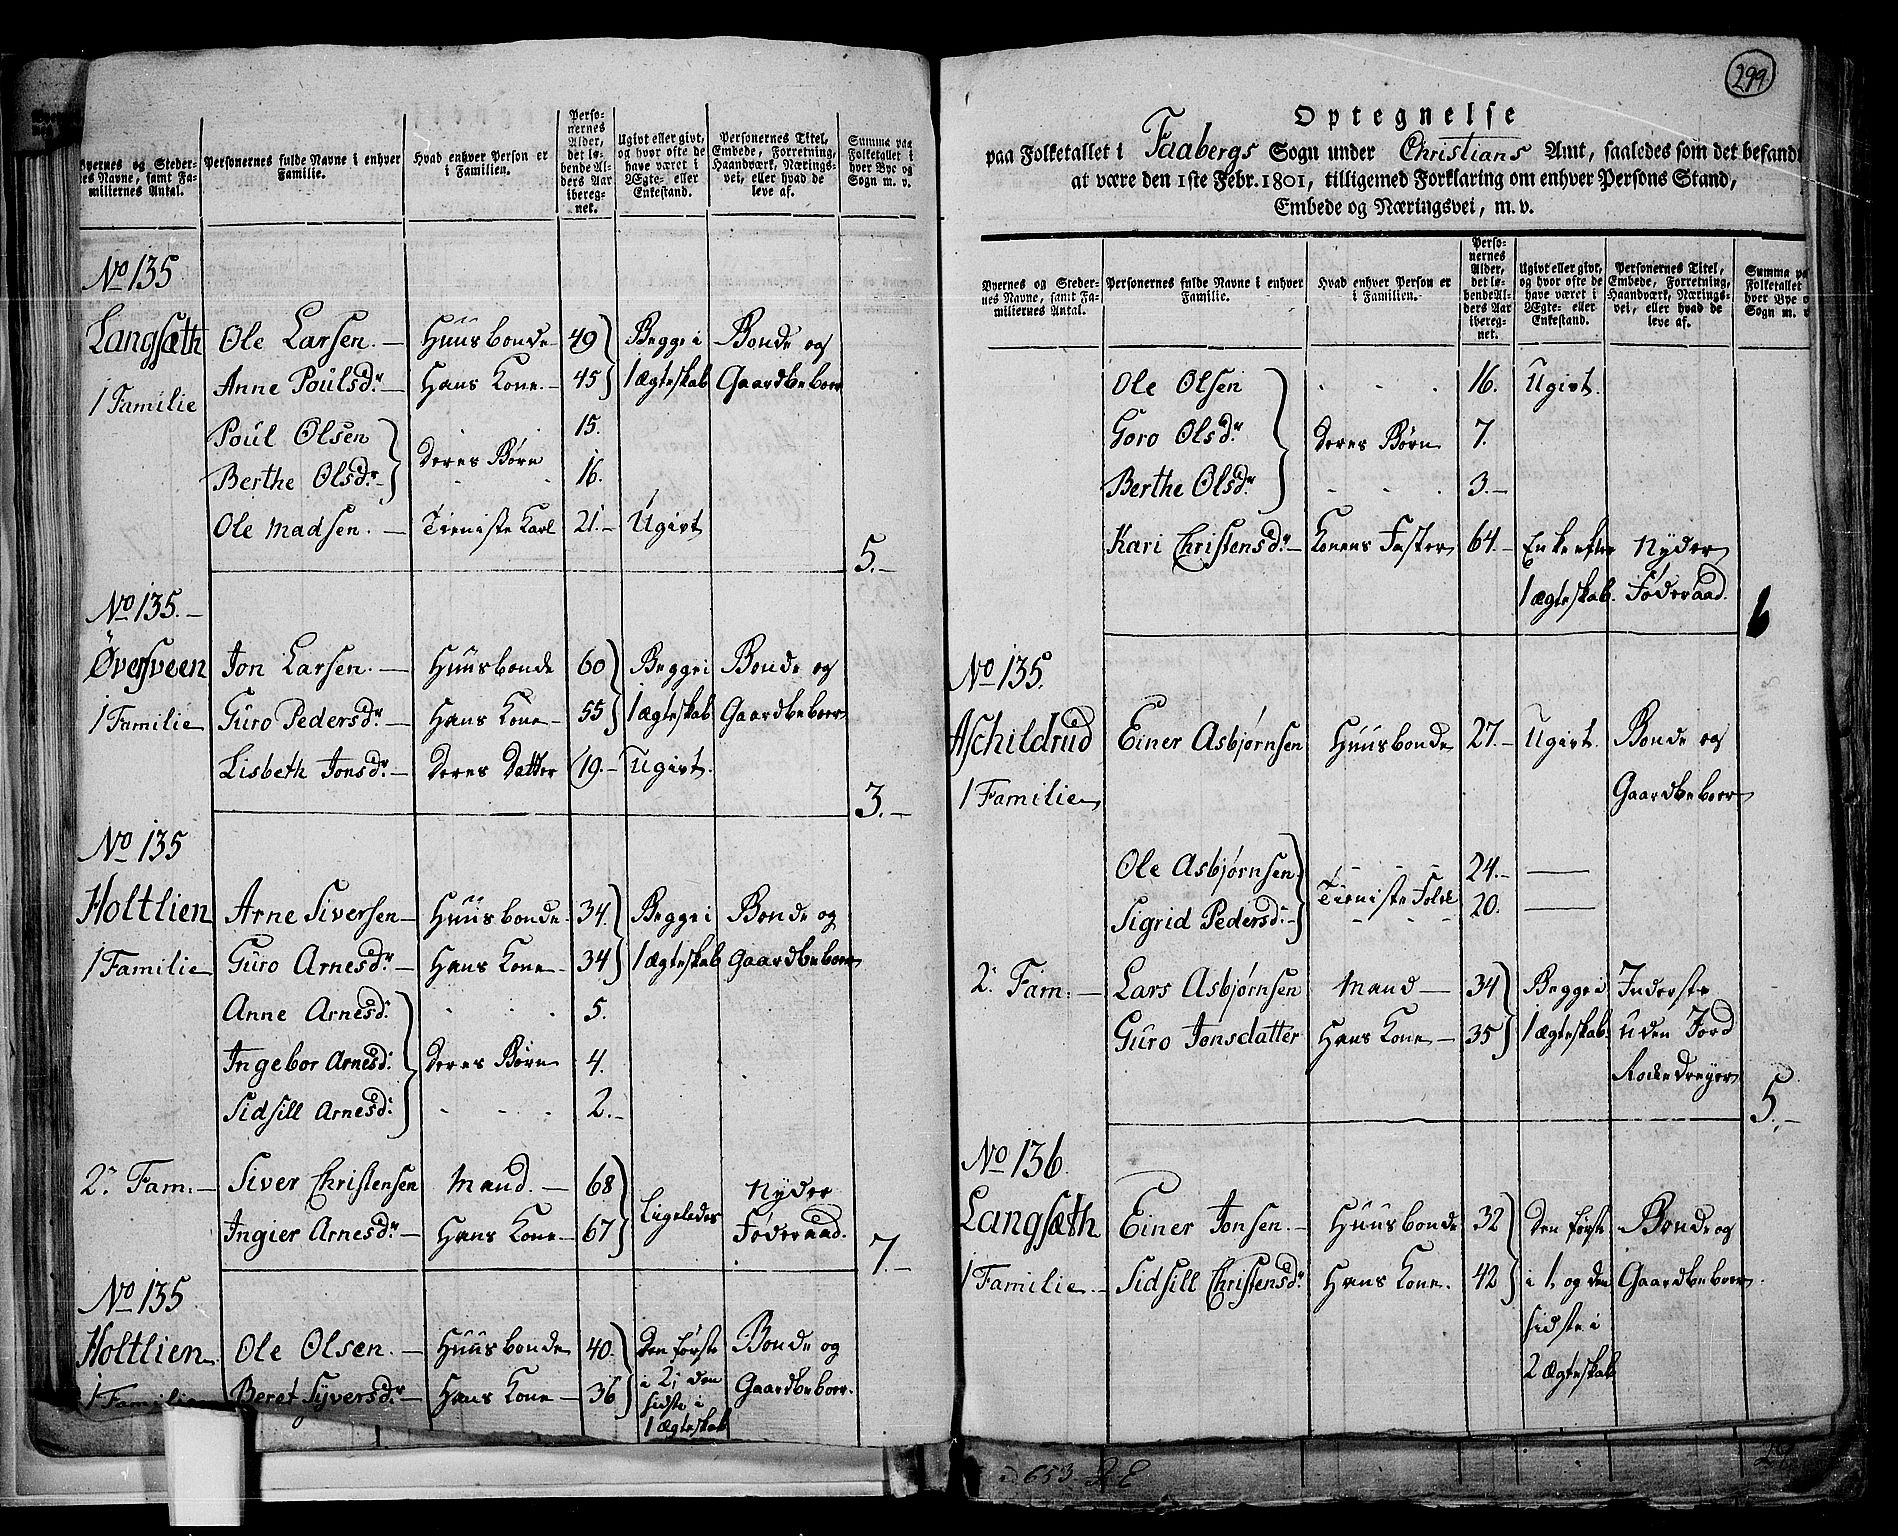 Byernes og Steder-
nes Navne, samt Fa-
miliernes Antal.
Personernes fulde Navne i enhver
Familie.
Hvad enhver Person er
i Familien.
Perso-
nernes
Alder,
det lø-
bende Al-
ders Aar
ibereg-
net.
Ugivt eller givt,
og hvor ofte de
have været i
Ægte- eller
Enkestand.
Personernes Titel,
Embede, Forretning,
Haandværk, Nærings-
vei, eller hvad de
leve af.
Summa paa
Folketallet i
hver Bye og
Sogn m. v.
No 135
Langsæth Ole Larsen. — Huusbonde 49 Begge i Bonde og
1 Familie Anne Poulsdr. — Hans Kone. — 45 1 ægteskab Gaardbeboer
Poul Olsen 15.
Deres Børn
Berthe Olsdr. — 16.
Ole Madsen. — Tieniste Karl 21. — Ugivt
5. —
No 135. —
Øversveen Jon Larsen. — Huusbonde 60 Begge i Bonde og
1 Familie Guro Pedersdr. — Hans Kone — 55 1 ægteskab Gaardbeboer
Lisbeth Jonsdr. — Deres Datter 19. — Ugivt.
3. —
No 135
Holtlien Arne Siversen — Huusbonde 34. Begge i Bonde og
1 Familie Guro Arnesdr. — Hans Kone — 34 1 ægteskab Gaardbeboer
Anne Arnesd: 5.
Ingebor Arnesd: Deres Børn 4.
Sidsill Arnesd: 2. —
2. Fam: — Siver Christensen Mand. — 68 Nyder
Ligeledes
Ingier Arnesdr. — Hans Kone — 67 Føderaad.
7. —
No 135
Holtlien Ole Olsen. — Huusbonde 40. Den første Bonde og
1 Familie Beret Syversdr. — Hans Kone — 36 i 2, den Gaardbeboer.
sidste i
1 ægteskab
299
Optegnelse
paa Folketallet i Faabergs Sogn under Christians Amt, saaledes som det befandt
at være den 1ste Febr. 1801, tilligemed Forklaring om enhver Persons Stand,
Embede og Næringsvei, m. v.
Byernes og Steder-
nes Navne, samt Fa-
miliernes Antal.
Personernes fulde Navne i enhver
Familie.
Hvad enhver Person er
i Familien.
Perso-
nernes
Alder,
det lø-
bende Al-
ders Aar
ibereg-
net.
Ugivt eller givt,
og hvor ofte de
have været i
Ægte- eller
Enkestand.
Personernes Titel,
Embede, Forretning,
Haandværk, Nærings-
vei, eller hvad de
leve af.
Summa pa
Folketallet
hver Bye o
Sogn m. v
Ole Olsen 16. Ugivt.
Goro Olsdr. Deres Børn 7.
Berthe Olsdr. 3. —
Kari Christensdr. — Konens Faster 64. — Enke efter Nyder
1 ægteskab. Føderaad.
6
No 135.
Aschildrud Einer Asbjørnsen Huusbonde 27. — Ugivt. Bonde og
1 Familie Gaardbeboer
Ole Asbjørnsen 24. — —
Tieniste Folk
Sigrid Pedersd: — 20. —
2. Fam: — Lars Asbjørnsen Mand — 34 Begge i Inderste
Guro Jonsdatter Hans Kone — 35 1 ægteskab. uden Jord
5. —
No 136.
Langsæth Einer Jonsen. — Huusbonde 32 Den første Bonde og
1 Familie. — Sidsill Christensdr. Hans Kone. 42 i 1, og den Gaardbeboer.
sidste i
2 ægteskab
653